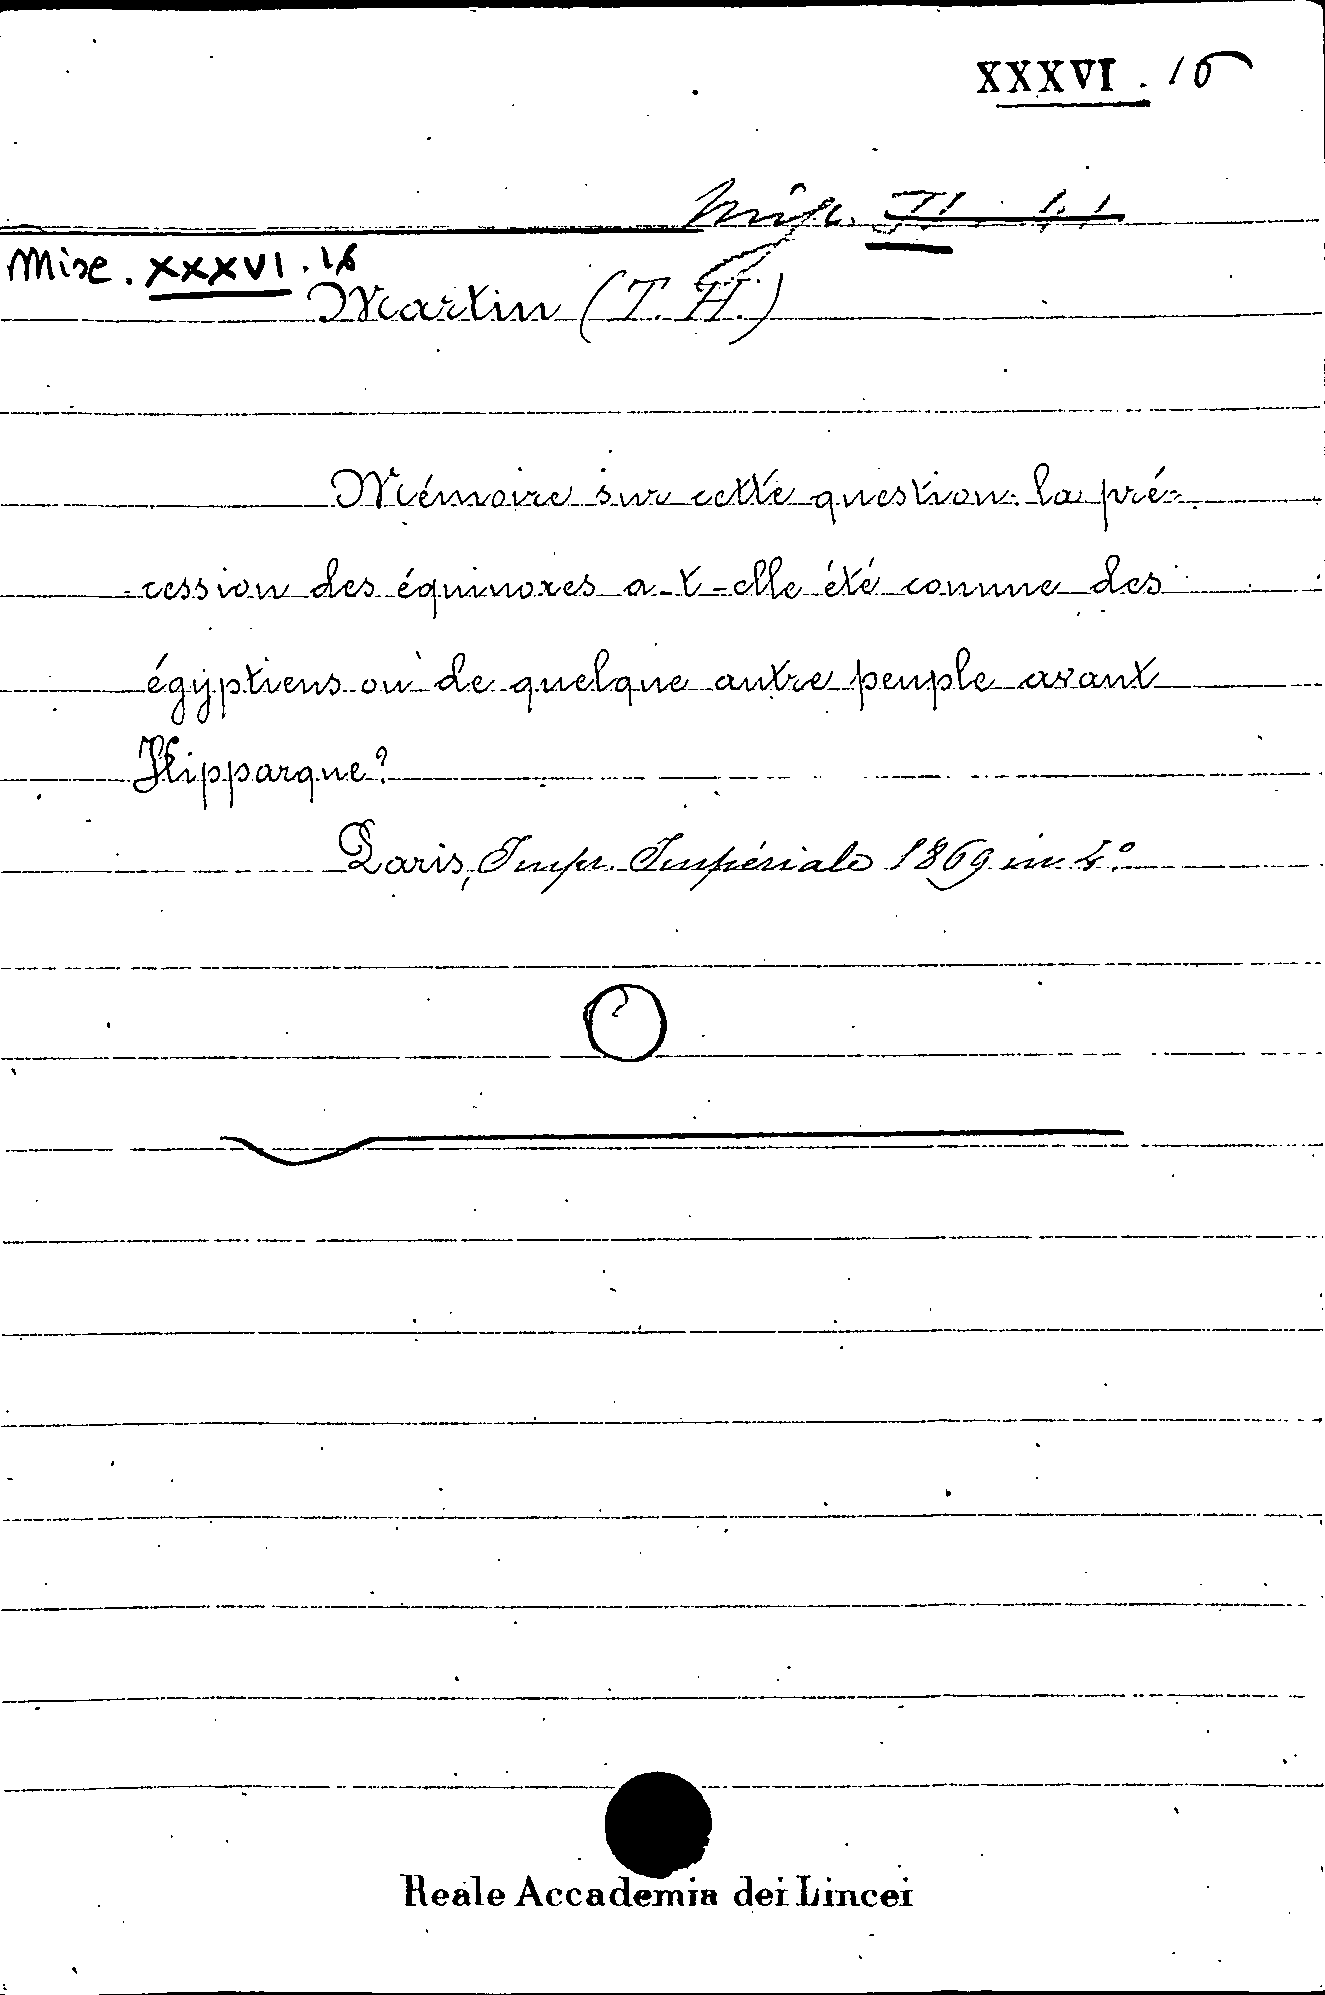 XXXVI . 16
Misc.
Misc. XXXVI . 16
Martin (T. H.)
Mémoire sur cette question: la pré-
cession des équinoxes a-t-elle été connue des
égyptiens ou de quelque autre peuple avant
Hipparque?
Paris, Impr. Impériale 1869 in 4°
Reale Accademia dei Lincei